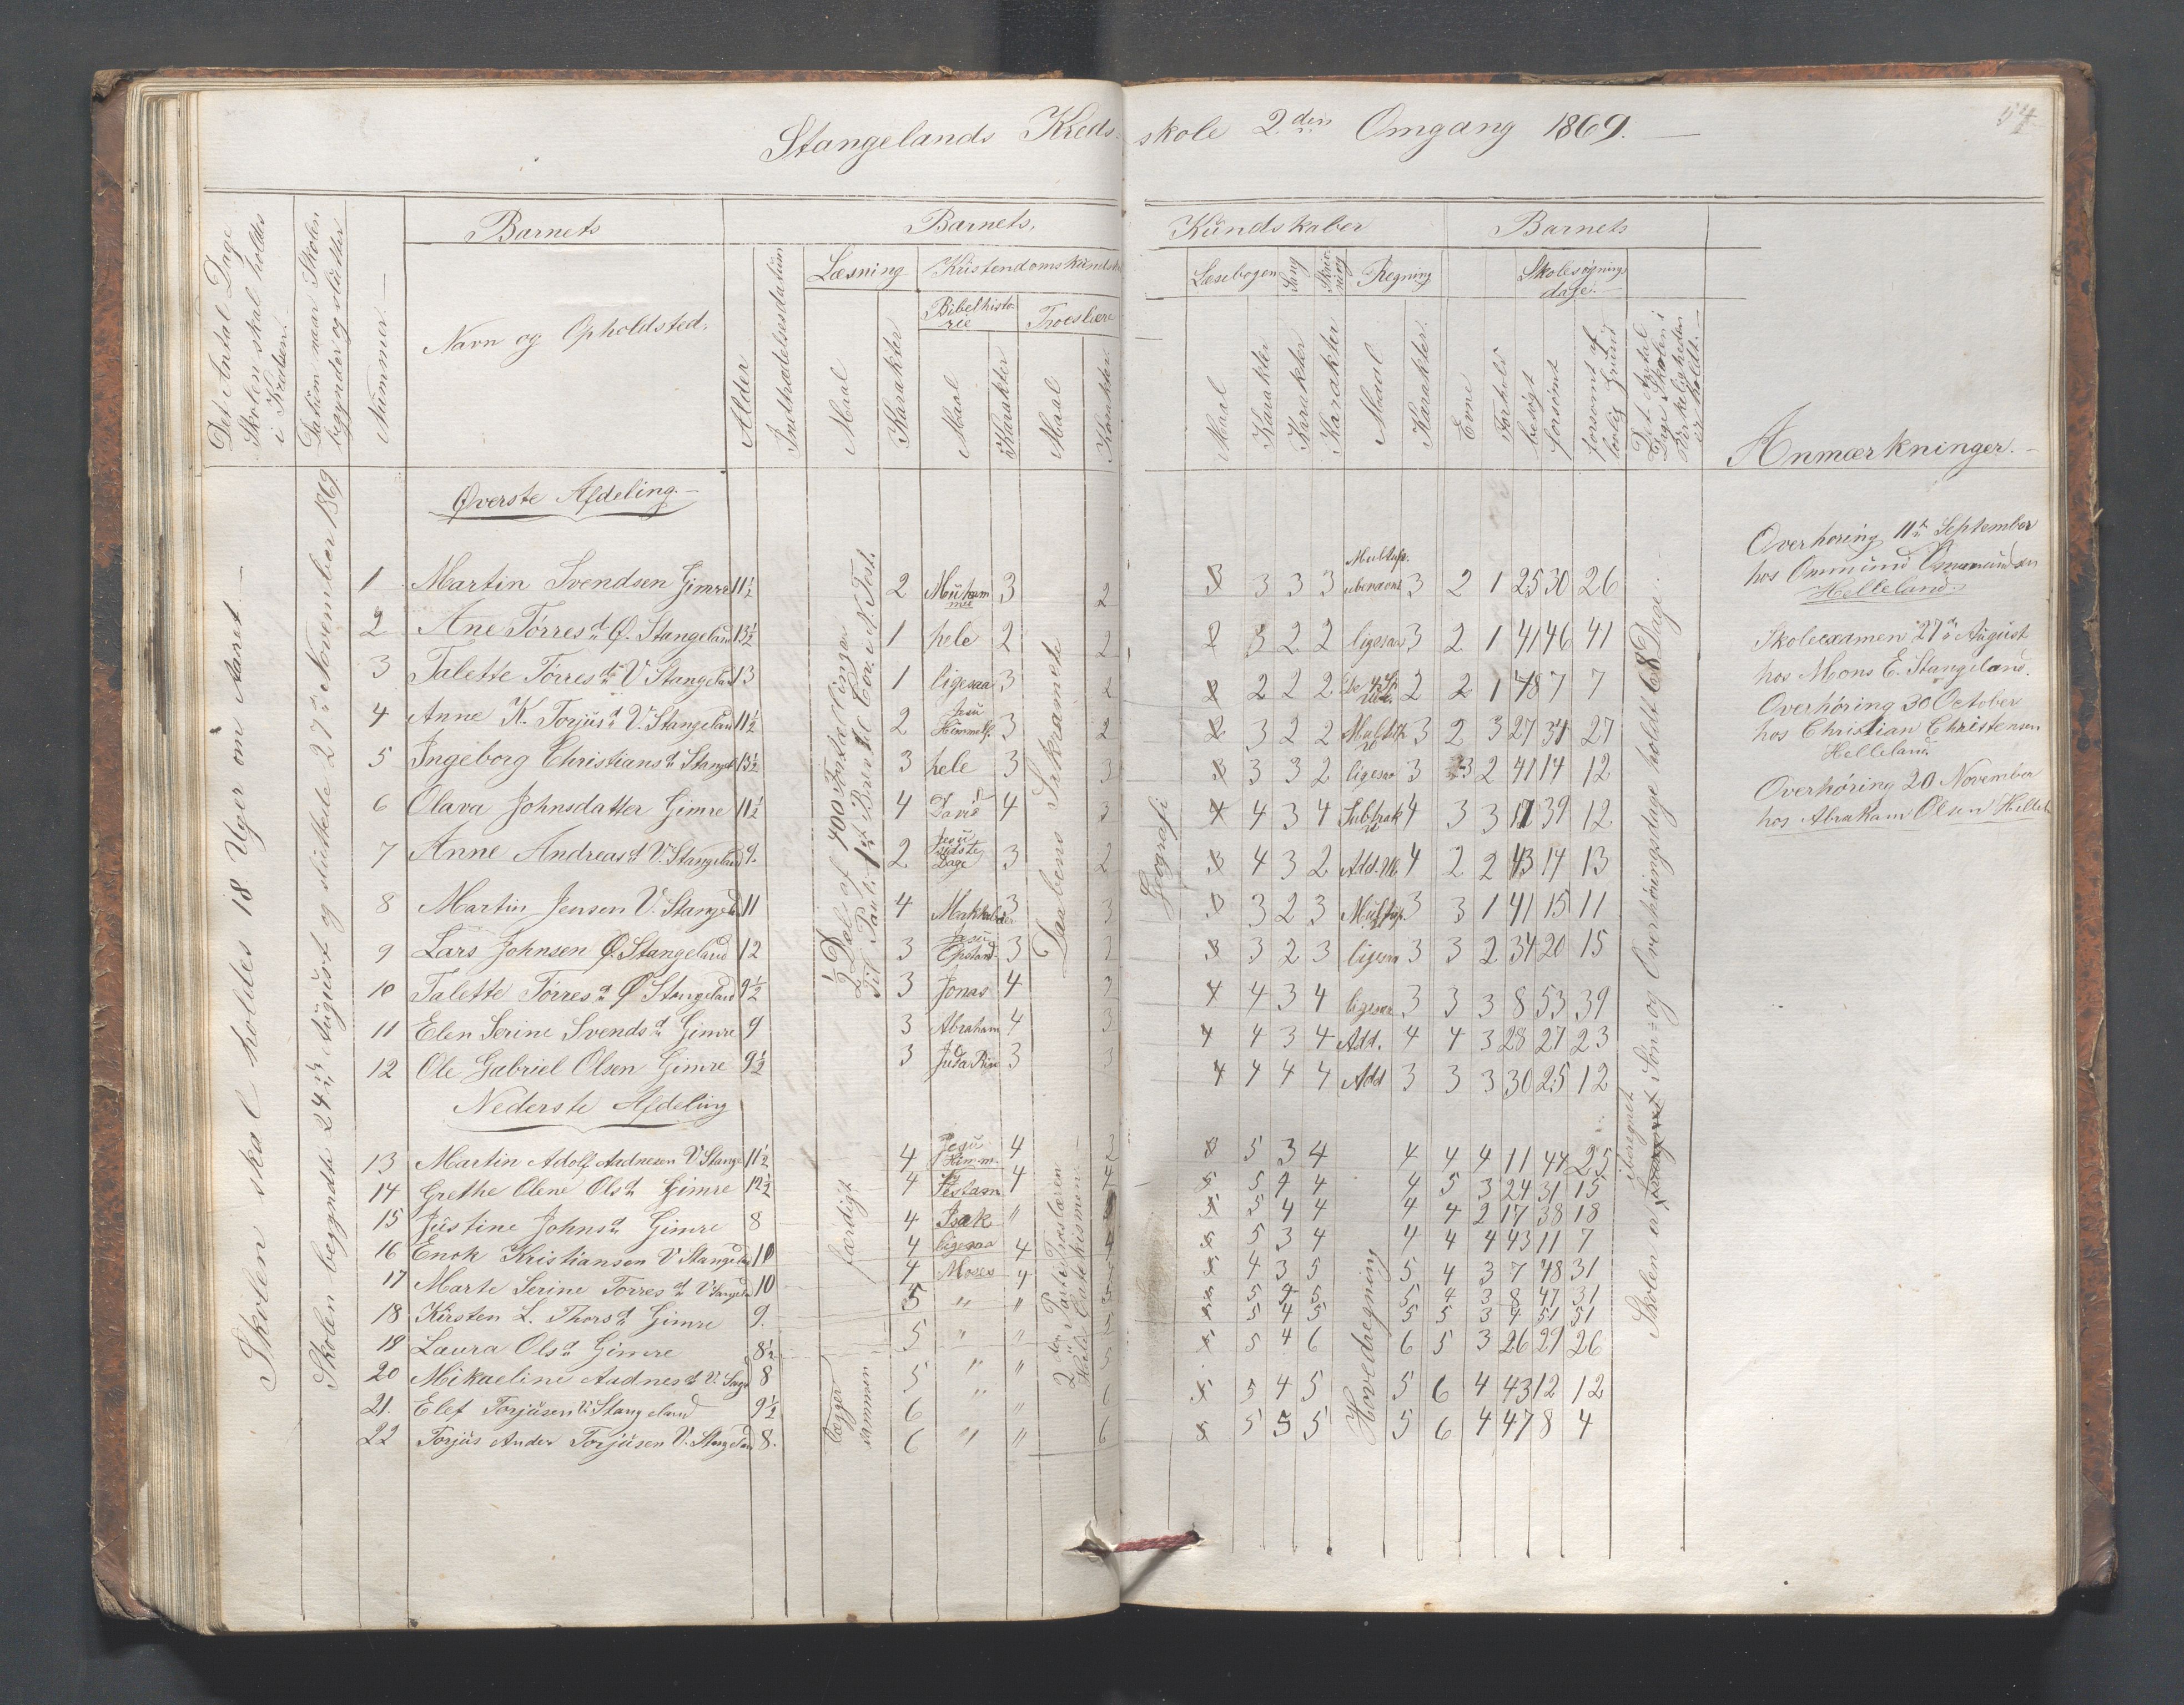 Stangelands Kreds-skole 2den Omgang 1869.
54
Det Antal Dage Skolen skal holdes i Kredsen.
Datum naar Skolen begynder og slutter
Nummer
Barnets
Navn og Opholdsted.
Alder
Indtrædelsesdatum
Barnets
Læsning
Maal
Karakter
Kristendomskundsk
Bibelhistorie
Maal
Karakter
Troeslære
Maal
Karakter
Kundskaber
Læsebogen
Maal
Karakter
Sang
Karakter
Skrivning
Karakter
Regning
Maal
Karakter
Barnets
Evne
Forhold
Skolesøgningsdage
besøgt
forsømt
forsømt af lovlig Grund
Det Antal Dage Skolen i Virkeligheden er holdt.
Anmærkninger.
Skolen skal holdes 18 Uger om Aaret
Skolen begyndte 24de August og sluttede 27de November 1869
Øverste Afdeling
1 Martin Svendsen Gimre 11½ 2 3 2 3 3 3 3 2 1 25 30 26
2 Ane Tørresd. Ø. Stangeland 13½ 1 hele 2 2 3 2 2 ligesaa 3 2 1 41 46 41
3 Talette Tørresd. V Stangeland 13 1 ligesaa 3 2 2 2 2 2 2 1 48 7 7
4 Anne K. Torjusd. V. Stangeland 11½ 2 Jesu Himmelf. 3 2 3 2 2 3 2 3 27 31 27
5 Ingeborg Christiansd. Stangel 13½ 3 hele 3 3 3 3 2 ligesaa 3 3 2 41 14 12
6 Olava Johnsdatter Gimre 11½ 4 David 4 3 4 3 4 Subtrak 4 3 3 17 39 12
7 Anne Andreasd V. Stangeland 9. 2 Jesu sidste Dage 3 2 4 3 2 Add. 4 2 2 43 14 13
8 Martin Jensen V. Stangel 11 4 3 3 3 2 3 3 3 1 41 15 11
9 Lars Johnsen Ø. Stangeland 12 3 Jesu Opstand. 3 3 2 3 ligesaa 3 3 2 34 20 15
10 Talette Tørresd. Ø Stangeland 9½ 3 Jonas 4 4 3 4 ligesaa 3 3 3 8 53 39
11 Elen Serine Svendsd. Gimre 9 3 Abraham 4 3 4 3 4 Add. 4 4 3 28 27 23
12 Ole Gabriel Olsen Gimre 9½ 3 Juda Rige 3 3 4 4 4 Add 3 3 3 30 25 12
½ Del af 400 Fortællinger
Til Pauli 1ste Brev til Cor. N. Test.
Daabens Sakrament
Geografi
Nederste Afdeling
13 Martin Adolf Aadnesen V Stange 11½ 4 Jesu Himm. 4 3 5 3 4 4 4 4 11 44 25
14 Grethe Olene Olsd. Gimre 12½ 4 Testam 4 4 5 4 4 4 5 3 24 31 15
15 Justine Johnsd. Gimre 8 4 Isak " 5 4 4 4 4 2 17 38 18
16 Enok Kristiansen V Stangeland 10 4 ligesaa 4 4 5 3 4 4 4 4 43 11 7
17 Marte Serine Torresd. V Stangeld 10 4 Moses 4 4 3 5 5 4 3 7 48 31
18 Kirsten L. Thorsd. Gimre 9. 5 " " 5 4 5 5 4 3 8 47 31
19 Laura Olsd. Gimre 8½ 5 " " 5 4 5 5 5 3 4 51 51
20 Mikaeline Aadnesd V. Sange 8 5 " " 5 5 4 6 6 5 3 26 29 26
21. Elef Torjusen V. Stangeland 9½ 6 " " 6 5 4 5 5 6 4 43 12 12
22 Torjus Ander Torjusen V. Stangeland 8. 6 " " 6 5 5 5 5 6 4 47 8 4
færdigt
lægger sammen
2den Part Troeslæren
Hele Catekismen
Hovedregning
Skolen er iberegnet Søn- og Overhøringsdage holdt 68 Dage.
Overhøring 11te September
hos Osmund Osmundsen
Helleland.
Skoleexamen 27de August
hos Mons E. Stangeland.
Overhøring 30 October
hos Christian Christensen
Helleland
Overhøring 20 November
hos Abraham Olsen Hellel